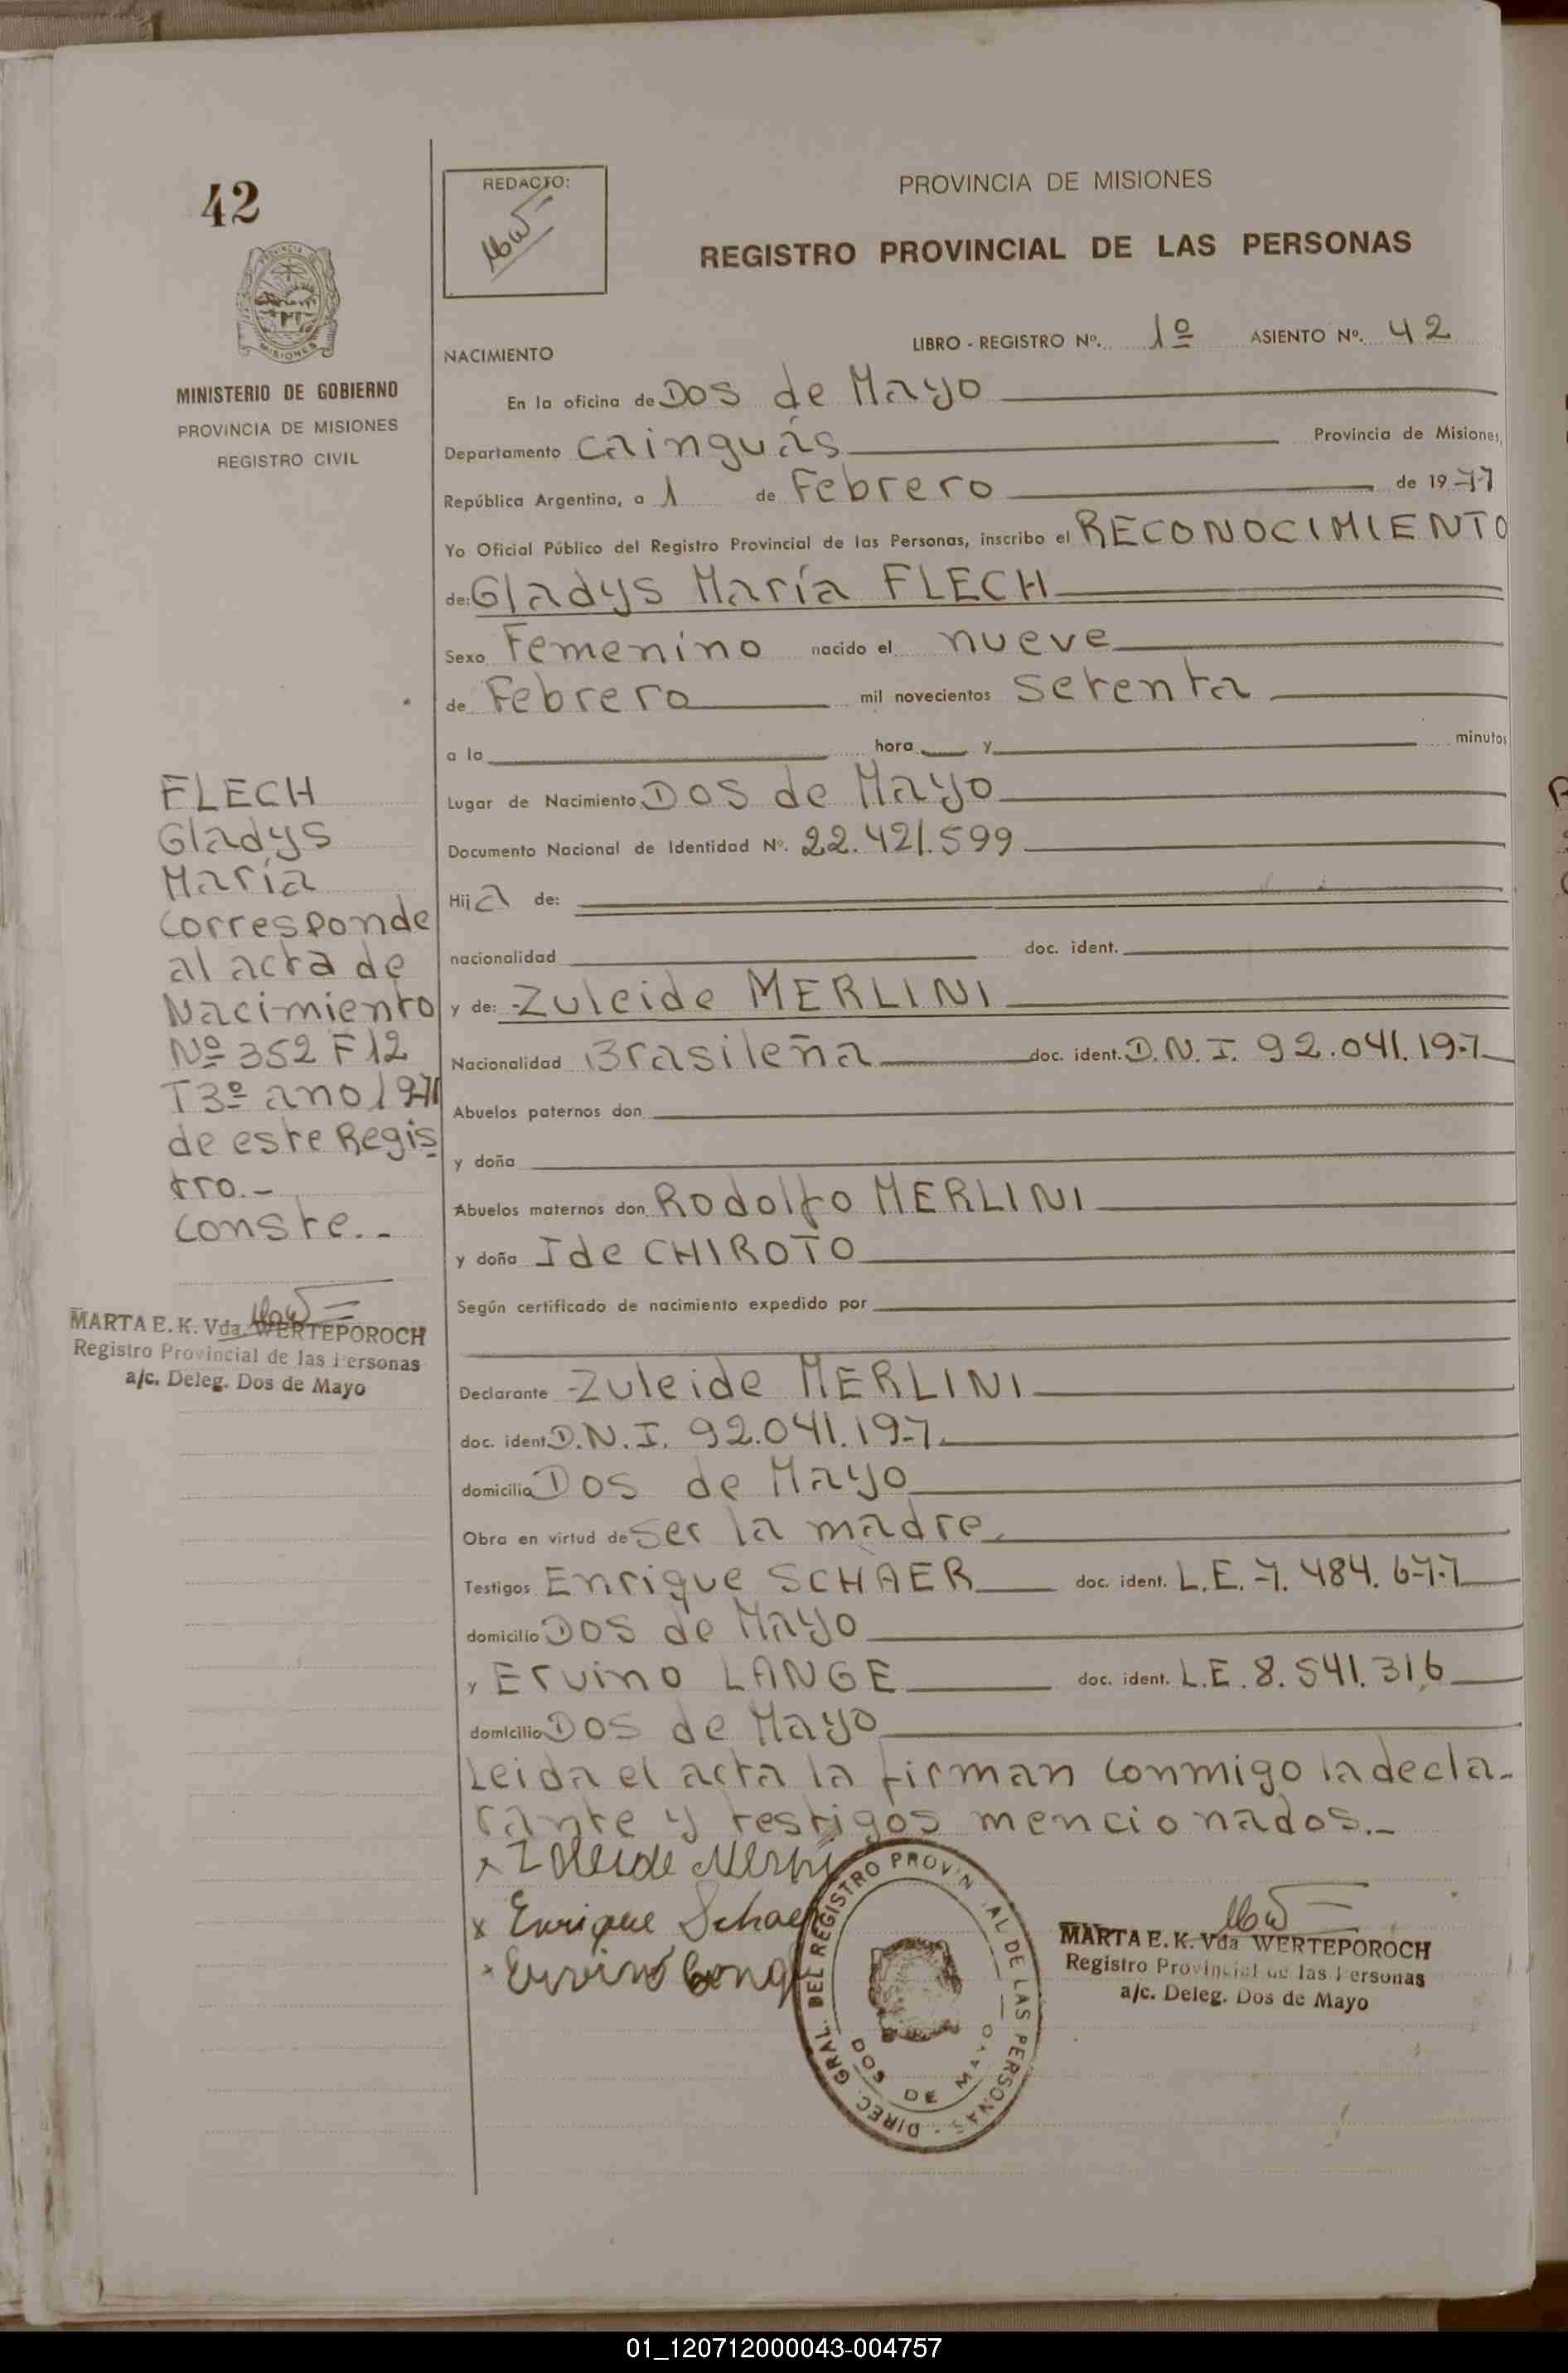 42
REDACTO:
PROVINCIA DE MISIONES
REGISTRO PROVINCIAL DE LAS PERSONAS
MISIONES
MINISTERIO DE GOBIERNO
PROVINCIA DE MISIONES
REGISTRO CIVIL
NACIMIENTO
LIBRO - REGISTRO Nº. 1º ASIENTO Nº. 42
En la oficina de Dos de Mayo
Departamento Cainguás Provincia de Misiones,
República Argentina, a 1 de Febrero de 1977
Yo Oficial Público del Registro Provincial de las Personas, inscribo el RECONOCIMIENTO
de: Gladys María FLECH
Sexo Femenino nacido el nueve
de Febrero mil novecientos setenta
a la hora y minutos
Lugar de Nacimiento Dos de Mayo
Documento Nacional de Identidad Nº. 22.421.599
Hija de:
nacionalidad doc. ident.
y de: Zuleide MERLINI
Nacionalidad Brasileña doc. ident. D.N.I. 92.041.197
Abuelos paternos don
y doña
Abuelos maternos don Rodolfo MERLINI
y doña Ide CHIROTO
Según certificado de nacimiento expedido por
Declarante Zuleide MERLINI
doc. ident. D.N.I. 92.041.197.
domicilio Dos de Mayo
Obra en virtud de ser la madre.
Testigos Enrique SCHAER doc. ident. L.E. 7.484.677
domicilio Dos de Mayo
y Ervino LANGE doc. ident. L.E. 8.541.316
domicilio Dos de Mayo
Leida el acta la firman conmigo la decla-
rante y testigos mencionados.-
FLECH
Gladys
María
Corresponde
al acta de
Nacimiento
Nº 352 F 12
T3º ano 1971
de este Regis
tro.-
Conste.-
MARTA E. K. Vda. WERTEPOROCH
Registro Provincial de las Personas
a/c. Deleg. Dos de Mayo
x Zuleide Merlini
x Enrique Schaer
x Ervino Lange
DIREC. GRAL. DEL REGISTRO PROVINCIAL DE LAS PERSONAS
DOS DE MAYO
MARTA E. K. Vda WERTEPOROCH
Registro Provincial de las Personas
a/c. Deleg. Dos de Mayo
01_120712000043-004757